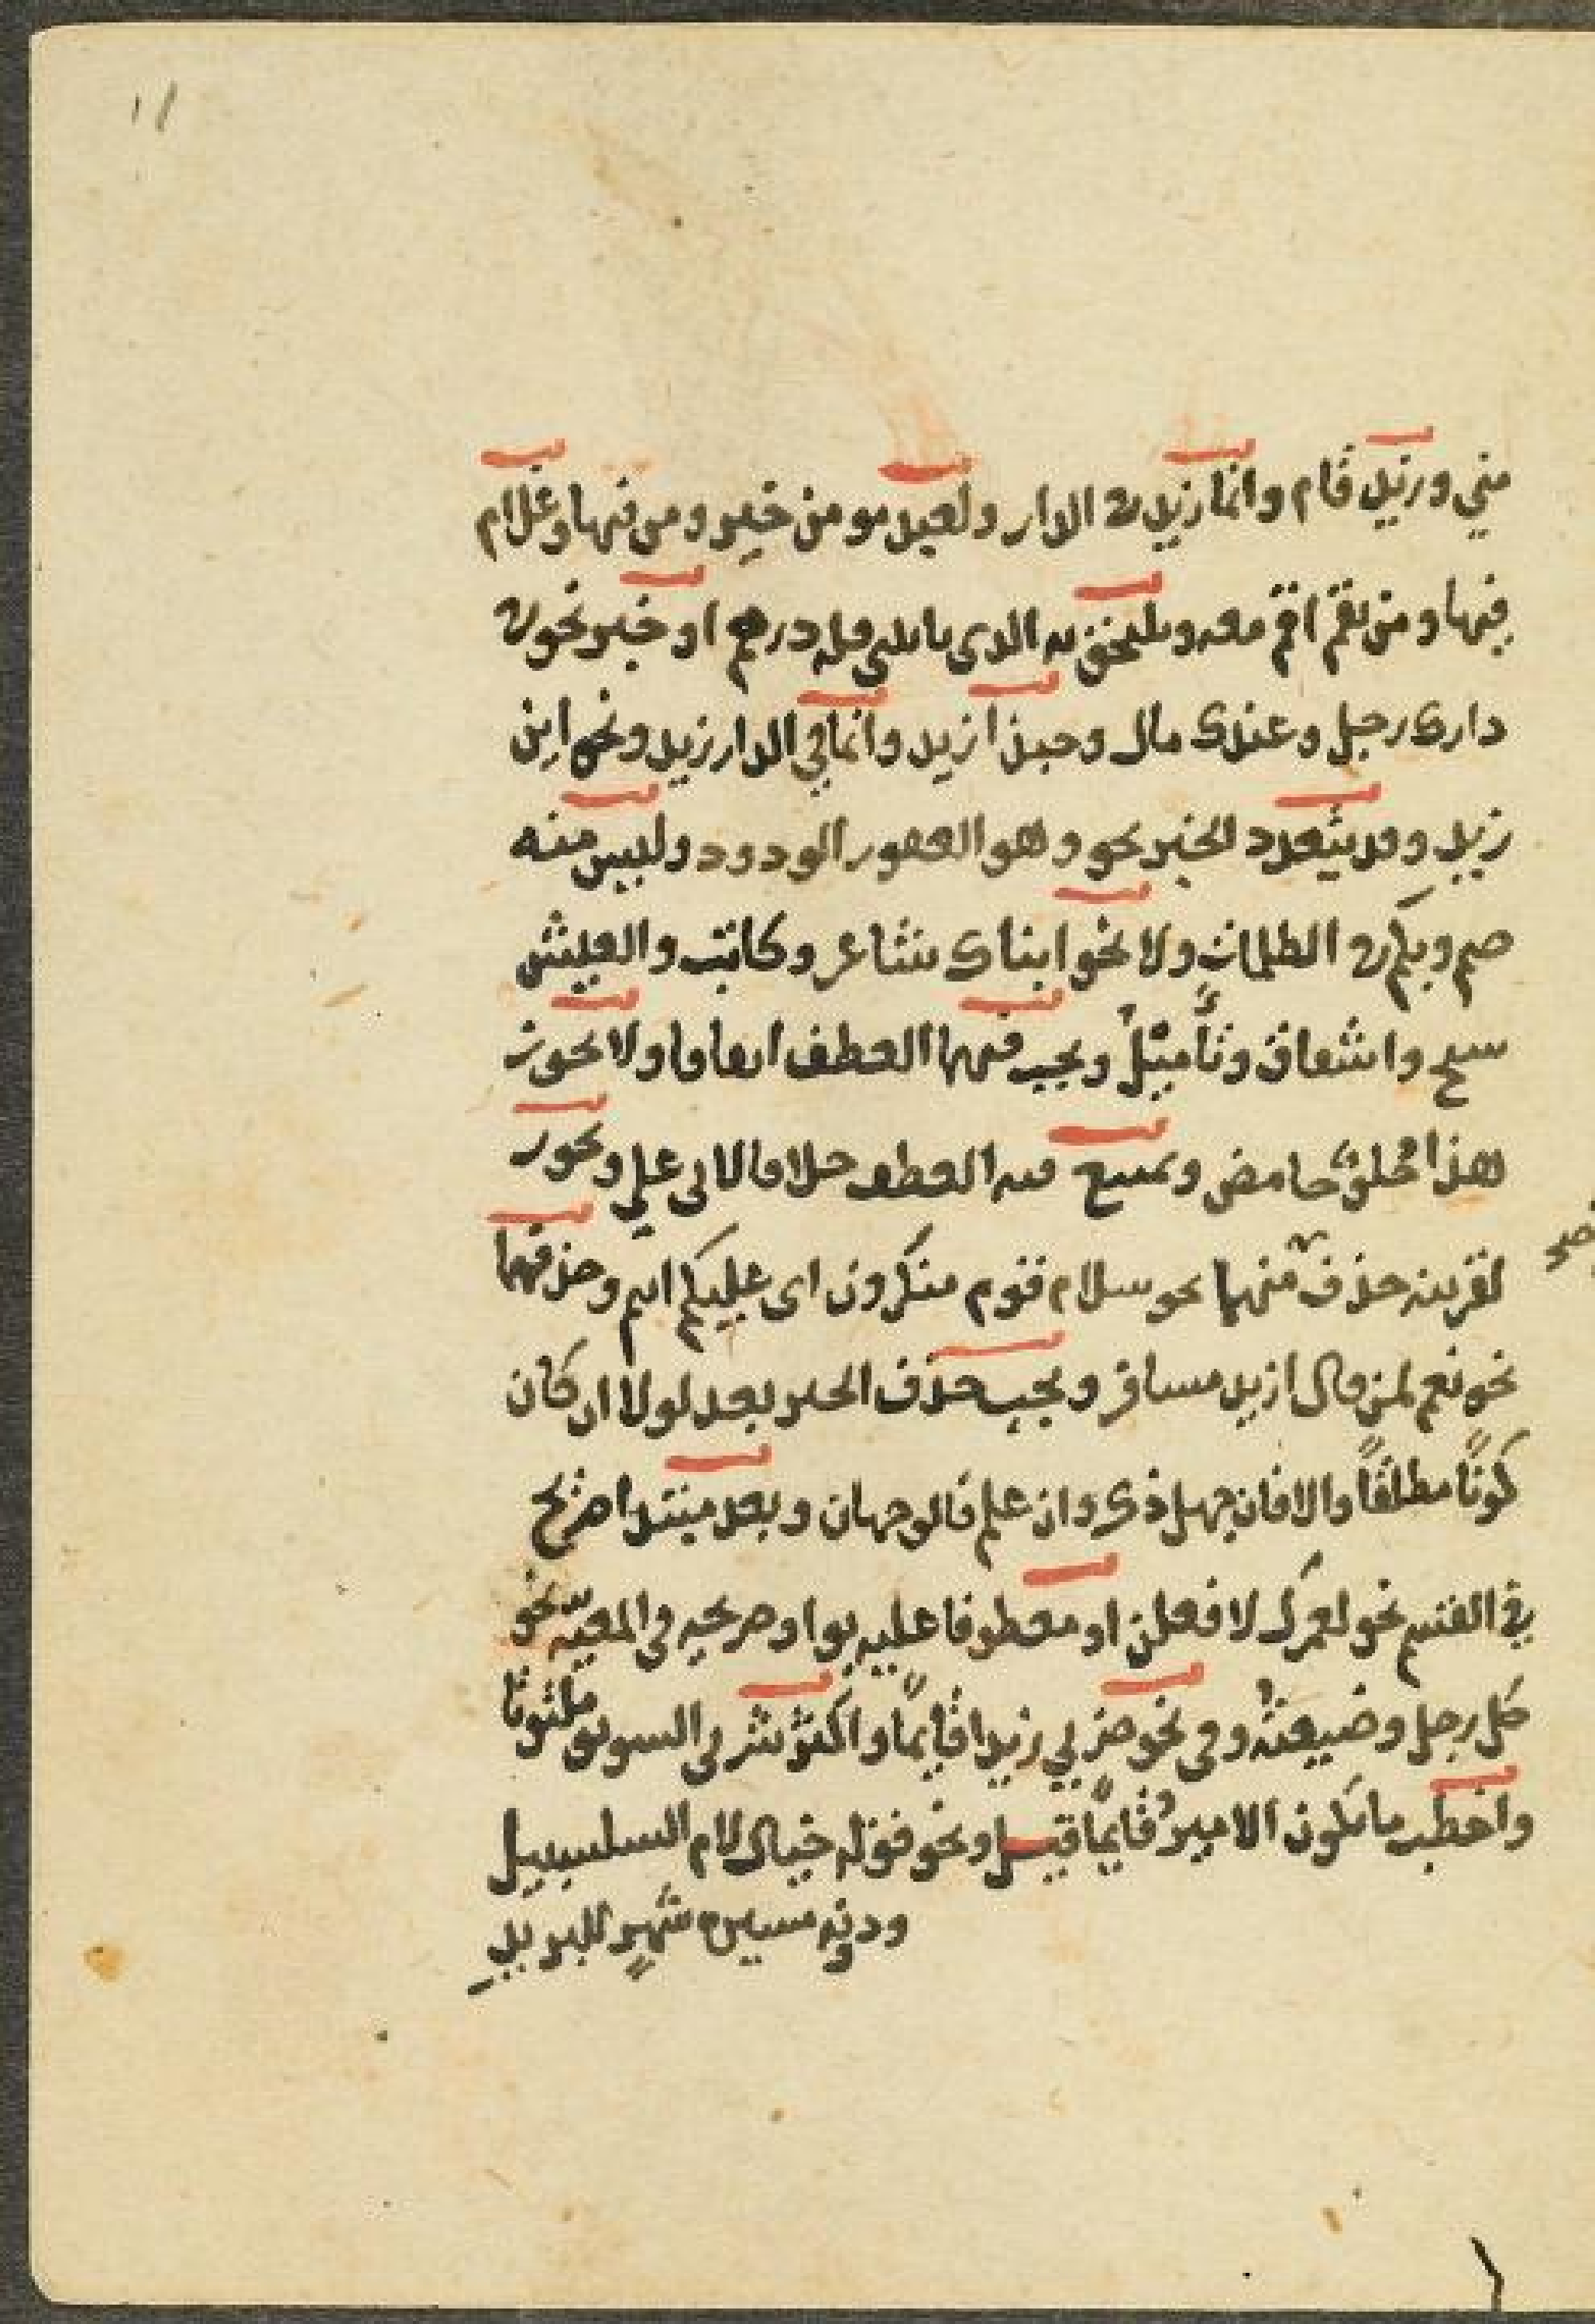 ١١
مني وزيد قام وانما زيد في الدار ولعبد مومن خير ومن فيها وغلام
فيها ومن يقم اقم معه ويلتحق به الذي ياتيني فله درهم او خبر نحو في
داري رجل وعندي مال وحبذا زيد وانما في الدار زيد ونحو اين
زيد وقد يتعدد الخبر نحو وهو الغفور الودود وليس منه
صم وبكم في الظلمات ولا نحو ابناي شاعر وكاتب والعيش
شح واشفاق وتأميل ويجب فيهما العطف اتفاقا ولا نحو
هذا حلو حامض ويمتنع فيه العطف خلافا لابي علي ويجوز
لقرينة حذف منهما نحو سلام قوم منكرون اي عليكم انتم وحذفهما
نحو نعم لمن قال ازيد مسافر ويجب حذف الخبر بعد لولا ان كان
كونًا مطلقًا والا فان جهل ذكر وان علم فالوجهان وبعد مبتدا صريح
في القسم نحو لعمرك لافعلن او معطوفا عليه بواو صريحه في المعيّه نحو
كل رجل وضيعته وفي نحو ضربي زيدا قايمًا واكثر شربي السويق ملتوتا
واخطب ما يكون الامير قايمًا ونحو قوله خيال لام السلسبيل
ودونه مسيره شهرٍ للبريد